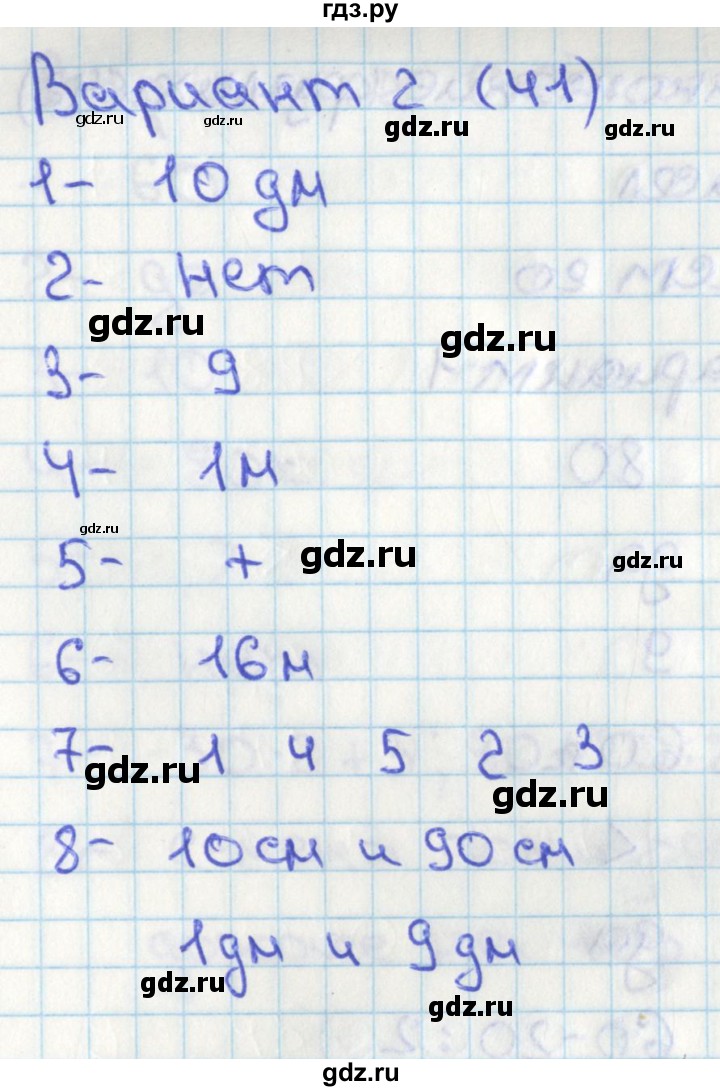 гдз.ру
Вариант 2 (41)
gdz.ru gdz.ru gdz.ru gdz.ru
1- 10 дм
2- нет
gdz.ru gdz.ru
3- 9
4- 1м
gdz.ru
5- + gdz.ru gdz.ru
6- 16м
7- 1 4 5 2 3
gdz.ru gdz.ru
8- 10 см и 90 см
1дм и 9 дм
gdz.ru gdz.ru
гдз.ру